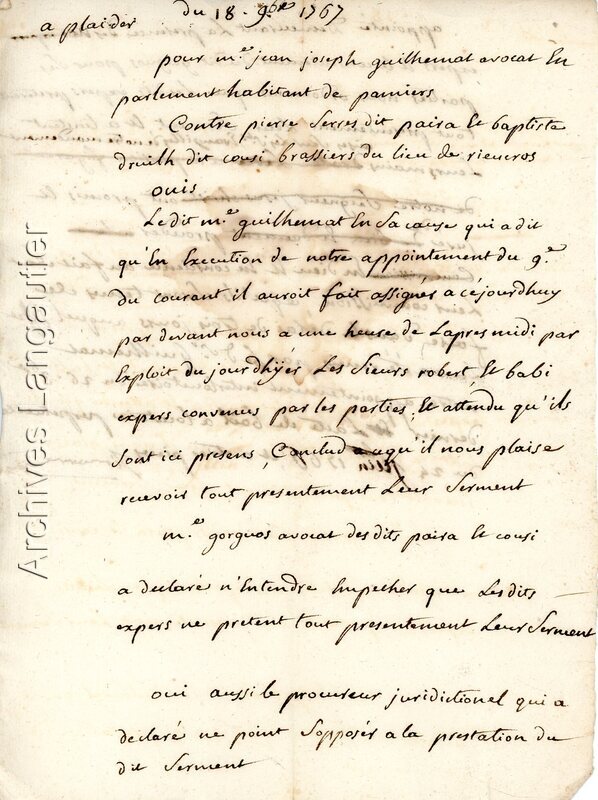 du 18. 9bre 1767
a plaider
pour m.e jean joseph guilhemat avocat En
parlement habitant de pamiers
Contre pierre serres dit paira Et baptiste
druilh dit cousi brassiers du lieu de rieucros
ouis
Le dit m.e guilhemat En sa cause qui a dit
qu'En Execution de notre appointement du 9.e
du courant il auroit fait assignés a céjourdhuy
par devant nous a une heure de Lapres midi par
Exploit du jourdhÿer Les Sieurs robert, Et babi
expers convenus par les parties, Et attendu qu'ils
sont ici presens, Conclud a qu'il nous plaise
recevoir tout presentement Leur Serment
m.e gorguos avocat des dits paira Et cousi
a declaré n'Entendre Empecher que Les dits
expers ne pretent tout presentement Leur Serment
oui aussi le procureur juridictionel qui a
declaré ne point Sopposér a la prestation du
dit Serment
Archives Langautier